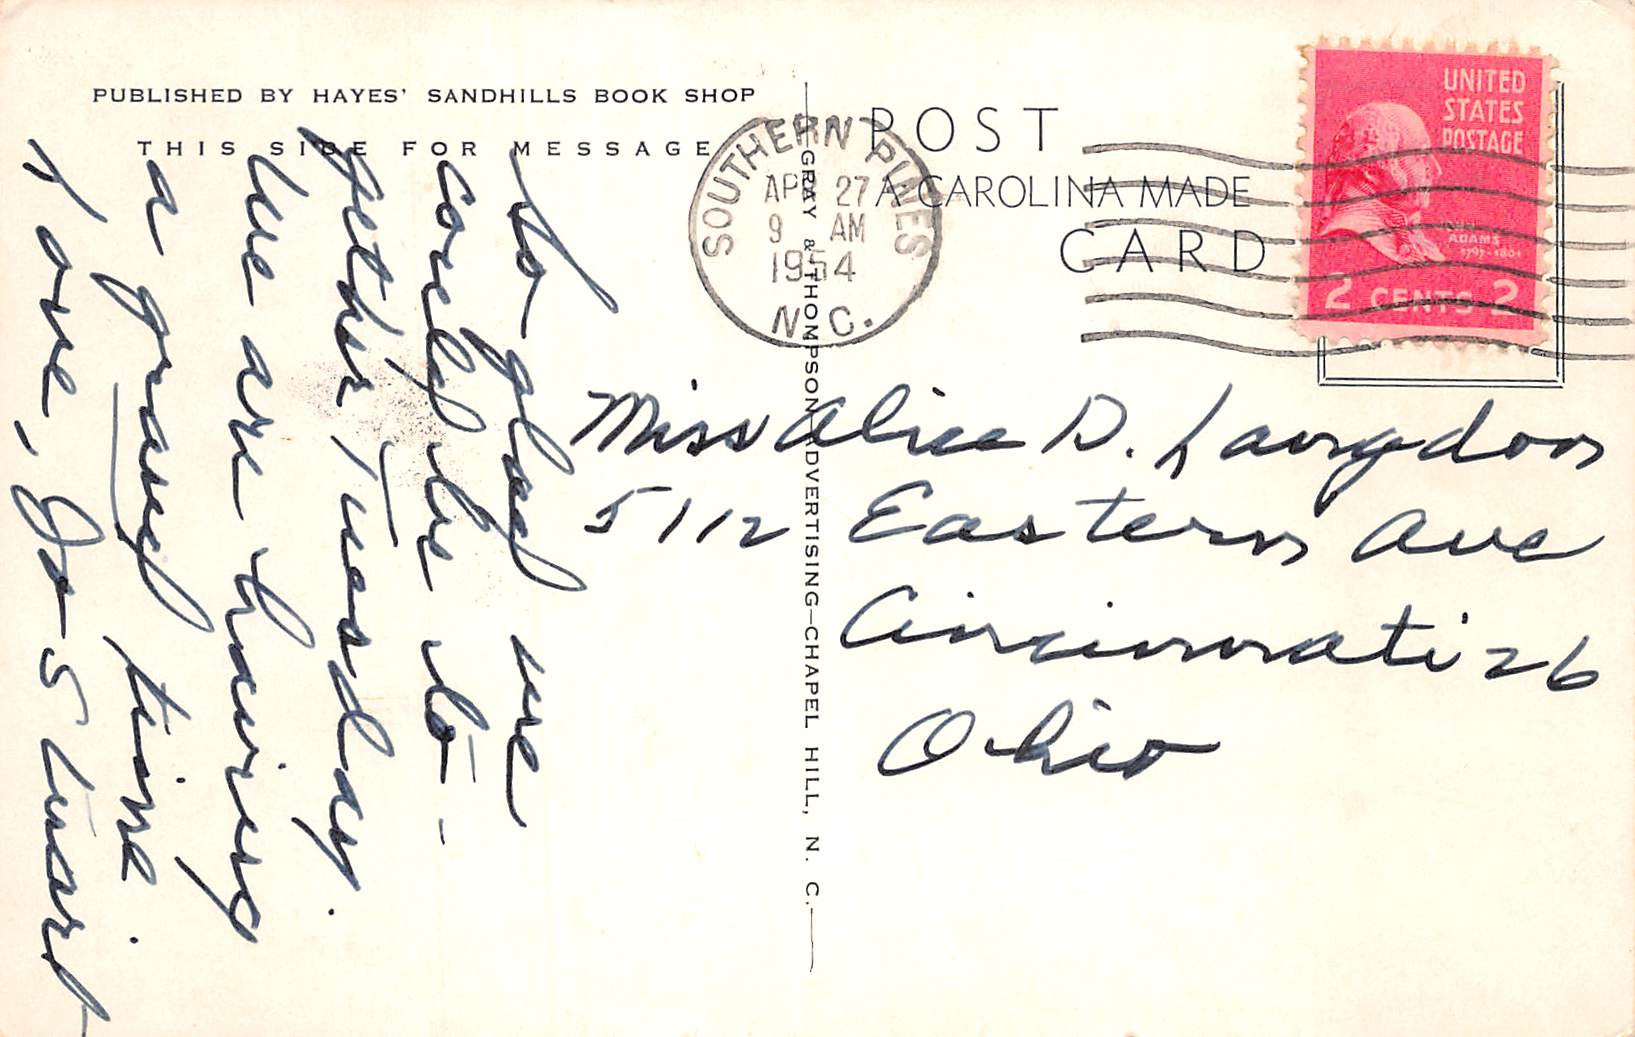 PUBLISHED BY HAYES' SANDHILLS BOOK SHOP
THIS SIDE FOR MESSAGE
So glad we
could be to-
gether Tuesday.
We are having
a grand time.
Love, Jo
GRAY & THOMPSON ADVERTISING—CHAPEL HILL, N. C.
SOUTHERN PINES
APR 27
9 AM
1954
N.C.
POST
A CAROLINA MADE
CARD
UNITED
STATES
POSTAGE
JOHN
ADAMS
1797-1801
2 CENTS 2
Miss Alice D. Langdon
5112 Eastern Ave
Cincinnati 26
Ohio